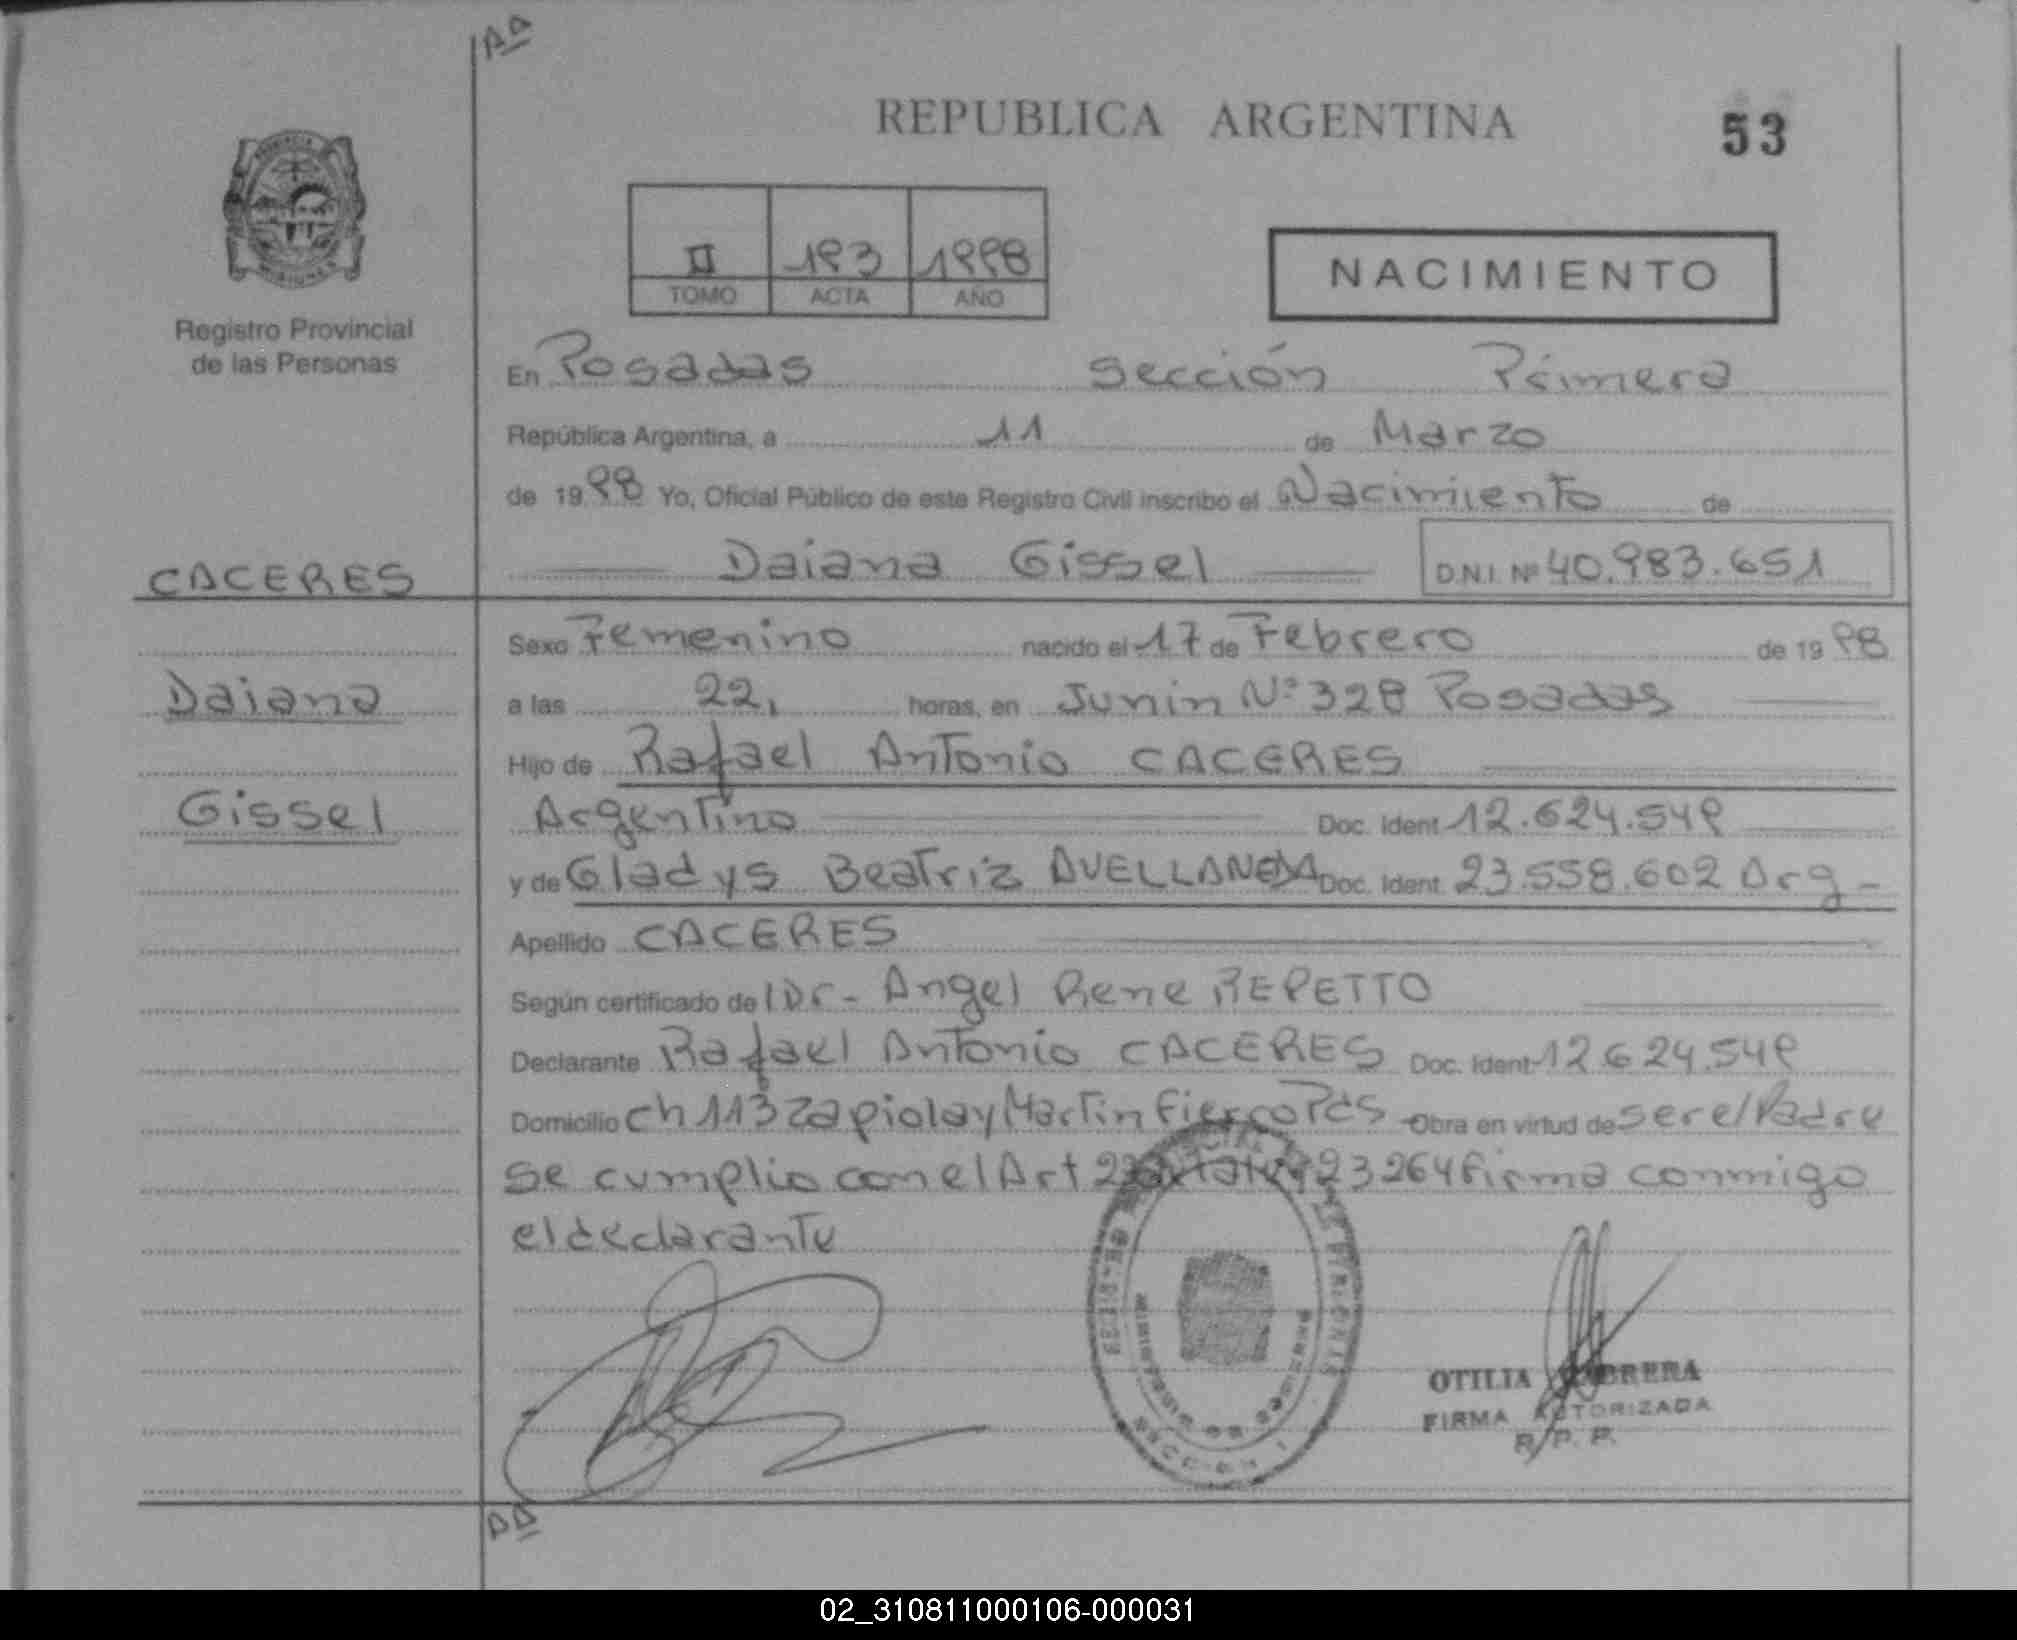 AA
REPUBLICA ARGENTINA
53
II 193 1998
TOMO ACTA AÑO
NACIMIENTO
Registro Provincial
de las Personas
En Posadas Sección Primera
República Argentina, a 11 de Marzo
de 1998 Yo, Oficial Público de este Registro Civil inscribo el Nacimiento de
CACERES
Daiana Gissel D.N.I. Nº 40.983.651
Sexo Femenino nacido el 17 de Febrero de 1998
Daiana
a las 22, horas, en Junin Nº 328 Posadas
Hijo de Rafael Antonio CACERES
Gissel
Argentino Doc. Ident. 12.624.549
y de Gladys Beatriz AVELLANEDA Doc. Ident. 23.558.602 Arg -
Apellido CACERES
Según certificado del Dr - Angel Rene REPETTO
Declarante Rafael Antonio CACERES Doc. Ident. 12.624.549
Domicilio Ch 113 Zapiola y Martin Fierro Pdas Obra en virtud de ser el Padre
se cumplio con el Art 23264 firma conmigo
el declarante
OTILIA CABRERA
FIRMA AUTORIZADA
R. P. P.
AA
02_310811000106-000031